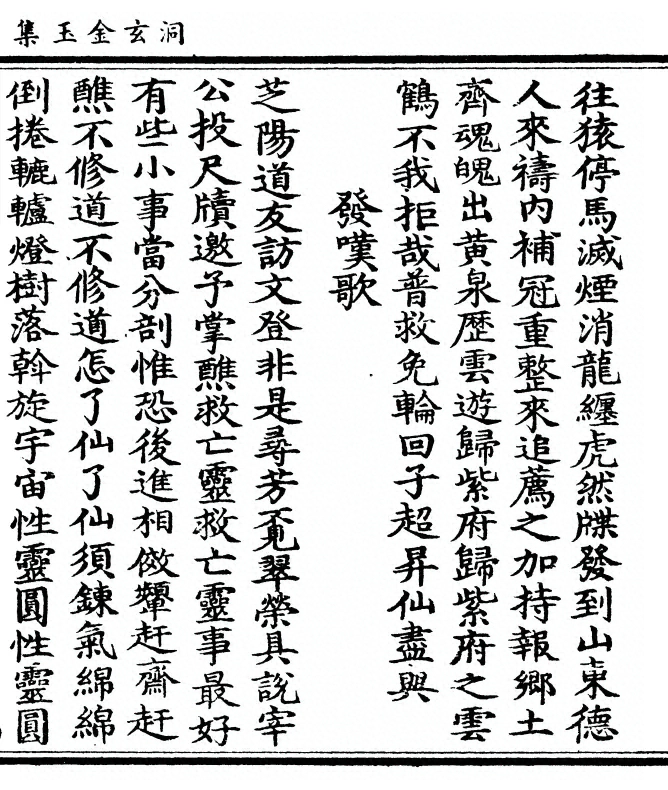 洞玄金玉集
往猿停馬滅煙消龍纏虎然牒發到山東德
人來禱內補冠重整來追薦之加持報鄉土
齊魂魄出黃泉歷雲遊歸紫府歸紫府之雲
鶴不我拒哉普救免輪回子超昇仙盡與
發嘆歌
芝陽道友訪文登非是尋芳覓翠榮具說宰
公投尺牘邀予掌醮救亡靈救亡靈事最好
有些小事當分剖惟恐後進相傚顰赶齋赶
醮不修道不修道怎了仙了仙須鍊氣綿綿
倒捲轆轤燈樹落斡旋宇宙性靈圓性靈圓